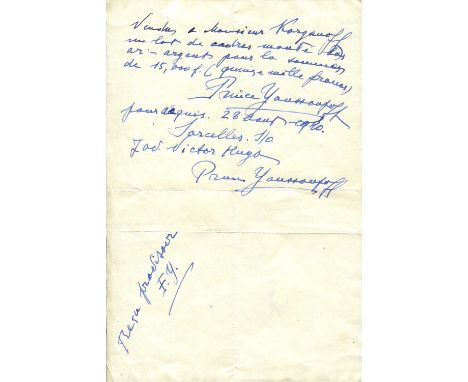 Vendus a Monsieur Korganoff
un lot de cadres monté
or - argents pour la sommes
de 15,000f. ( quinze mille francs)
Prince Youssoupoff
pour aquis. 28 aout
Sarcelles. S/O
Victor Hugo
Prince Youssoupoff
Recu provisoir
F. Y.